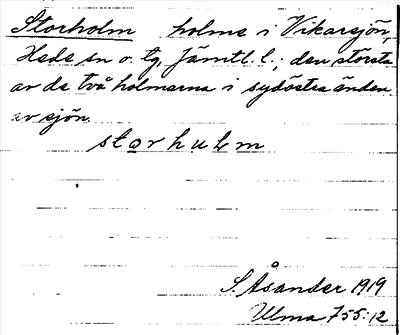 Storholm holme i Vikarsjön,
Hede sn o. tg, Jämtl. l.; den största
av de två holmarna i sydöstra änden
av sjön.
storhulm
S. Åsander 1919
Ulma 755:12